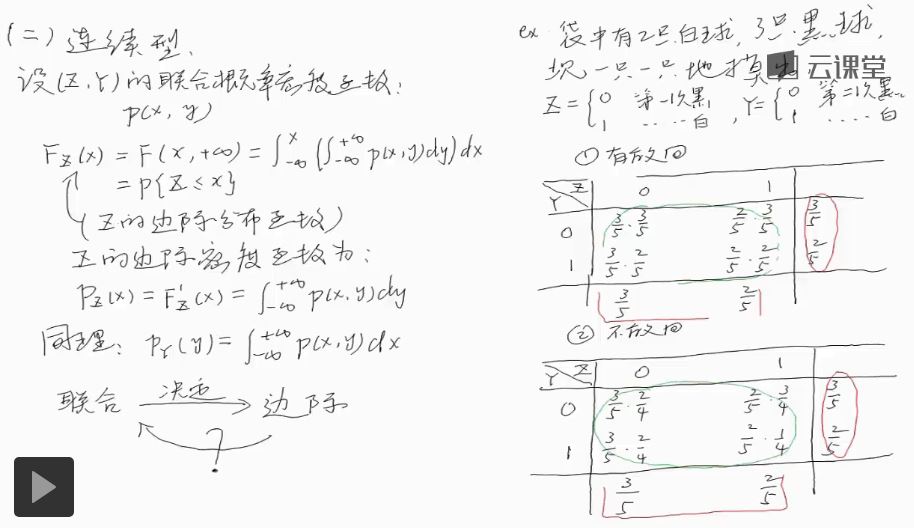 (二) 连续型.
设(X,Y)的联合概率密度函数:
p(x,y)
F_X(x) = F(x,+∞) = ∫_{-∞}^{x} (∫_{-∞}^{+∞} p(x,y)dy)dx
= p{X≤x}
(X的边际分布函数)
X的边际密度函数为:
P_X(x) = F'_X(x) = ∫_{-∞}^{+∞} p(x,y)dy
同理: p_Y(y) = ∫_{-∞}^{+∞} p(x,y)dx
联合 决定 边际
?
ex. 袋中有2只白球, 3只黑球,
一只一只地摸
云课堂
X = { 0 第一次黑, Y = { 0 第二次黑
1 ..... 白 1 ..... 白
① 有放回
Y X 0 1
0 3/5·3/5 2/5·3/5 3/5
1 3/5·2/5 2/5·2/5 2/5
3/5 2/5
② 不放回
Y X 0 1
0 3/5·2/4 2/5·3/4 3/5
1 3/5·2/4 2/5·1/4 2/5
3/5 2/5